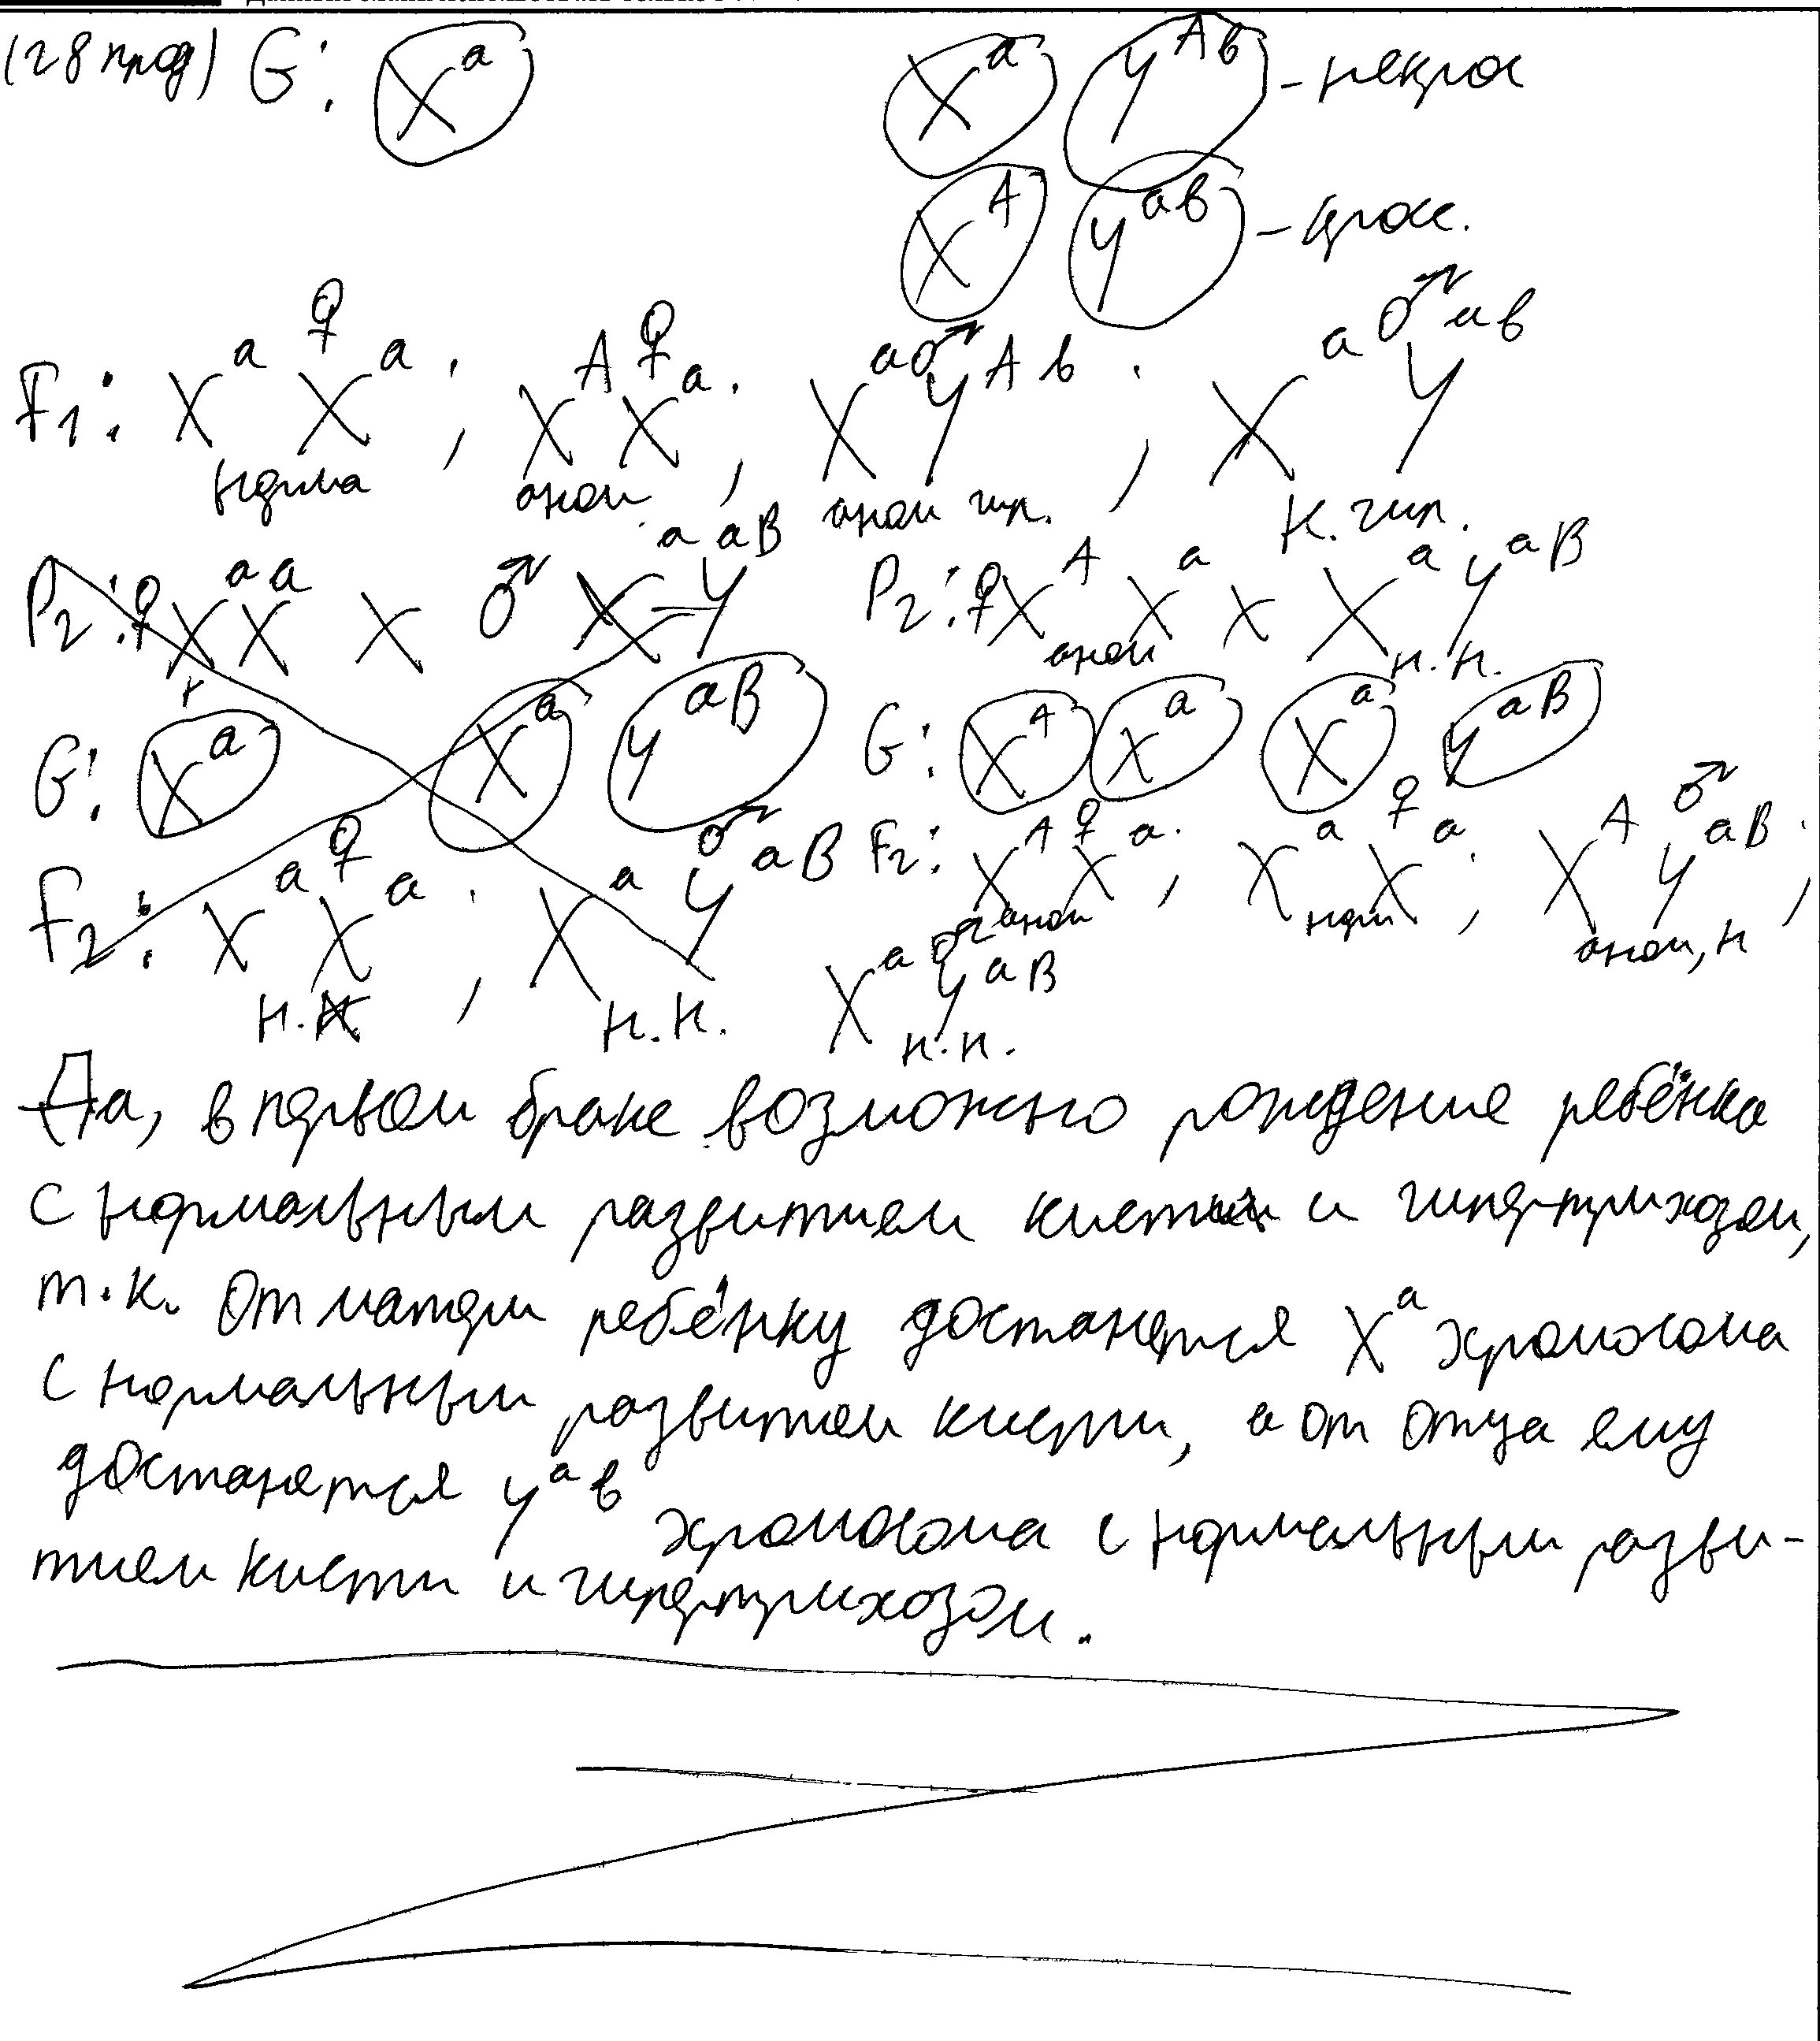 (28 прод) G: Xᵃ Xᵃ Yᴬᵇ - некрос
Xᴬ Yᵃᵇ - крос.
F₁: Xᵃ ♀ Xᵃ; Xᴬ ♀ Xᵃ; Xᵃ ♂ Yᴬᵇ; Xᵃ ♂ Yᵃᵇ
норма аном аном гип. н. гип.
P₂: ♀ XᵃXᵃ x ♂ XᵃYᵃᴮ P₂: ♀ XᴬXᵃ x XᵃYᵃᴮ
аном н.н.
G: Xᵃ Xᵃ Yᵃᴮ G: Xᴬ Xᵃ Xᵃ Yᵃᴮ
F₂: Xᵃ ♀ Xᵃ; Xᵃ ♂ Yᵃᴮ F₂: Xᴬ ♀ Xᵃ; Xᵃ ♀ Xᵃ; Xᴬ ♂ Yᵃᴮ;
аном норм аном, н
н. н.н. Xᵃ ♂ Yᵃᴮ
н.н.
Да, в первом браке возможно рождение ребёнка
с нормальным развитием кисти и гипертрихозом,
т.к. от матери ребёнку достанется Xᵃ хромосома
с нормальным развитем кисти, а от отца ему
достанется Yᵃᵇ хромосома с нормальным разви-
тием кисти и гипертрихозом.